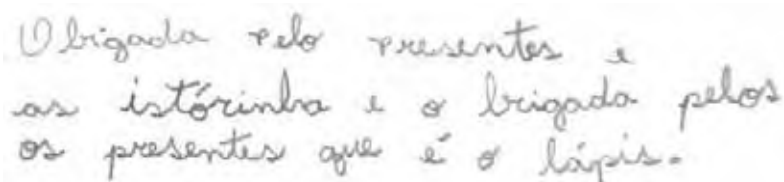 Obrigada pelo presentes e
as istórinha e o brigada pelos
os presentes que é o lápis.